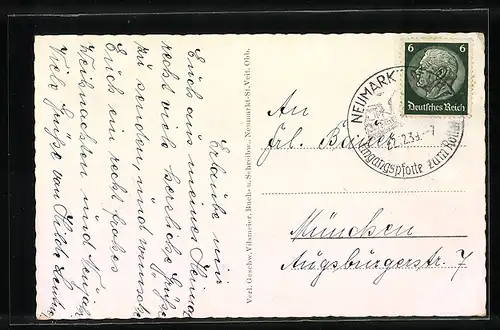 Erlaube mir
Euch aus meiner Heimat
recht viele herzliche Grüße
zu senden, und wünsche
Euch ein recht frohes
Weihnachten und Neujahr
Viele Grüße von Hilde
Verl. Geschw. Vilsmeier, Buch- u. Schreibw., Neumarkt-St. Veit, Obb.
6 6
Deutsches Reich
NEUMARKT
Eingangspforte zum
An
Frl.
München
Augsburgerstr. 7